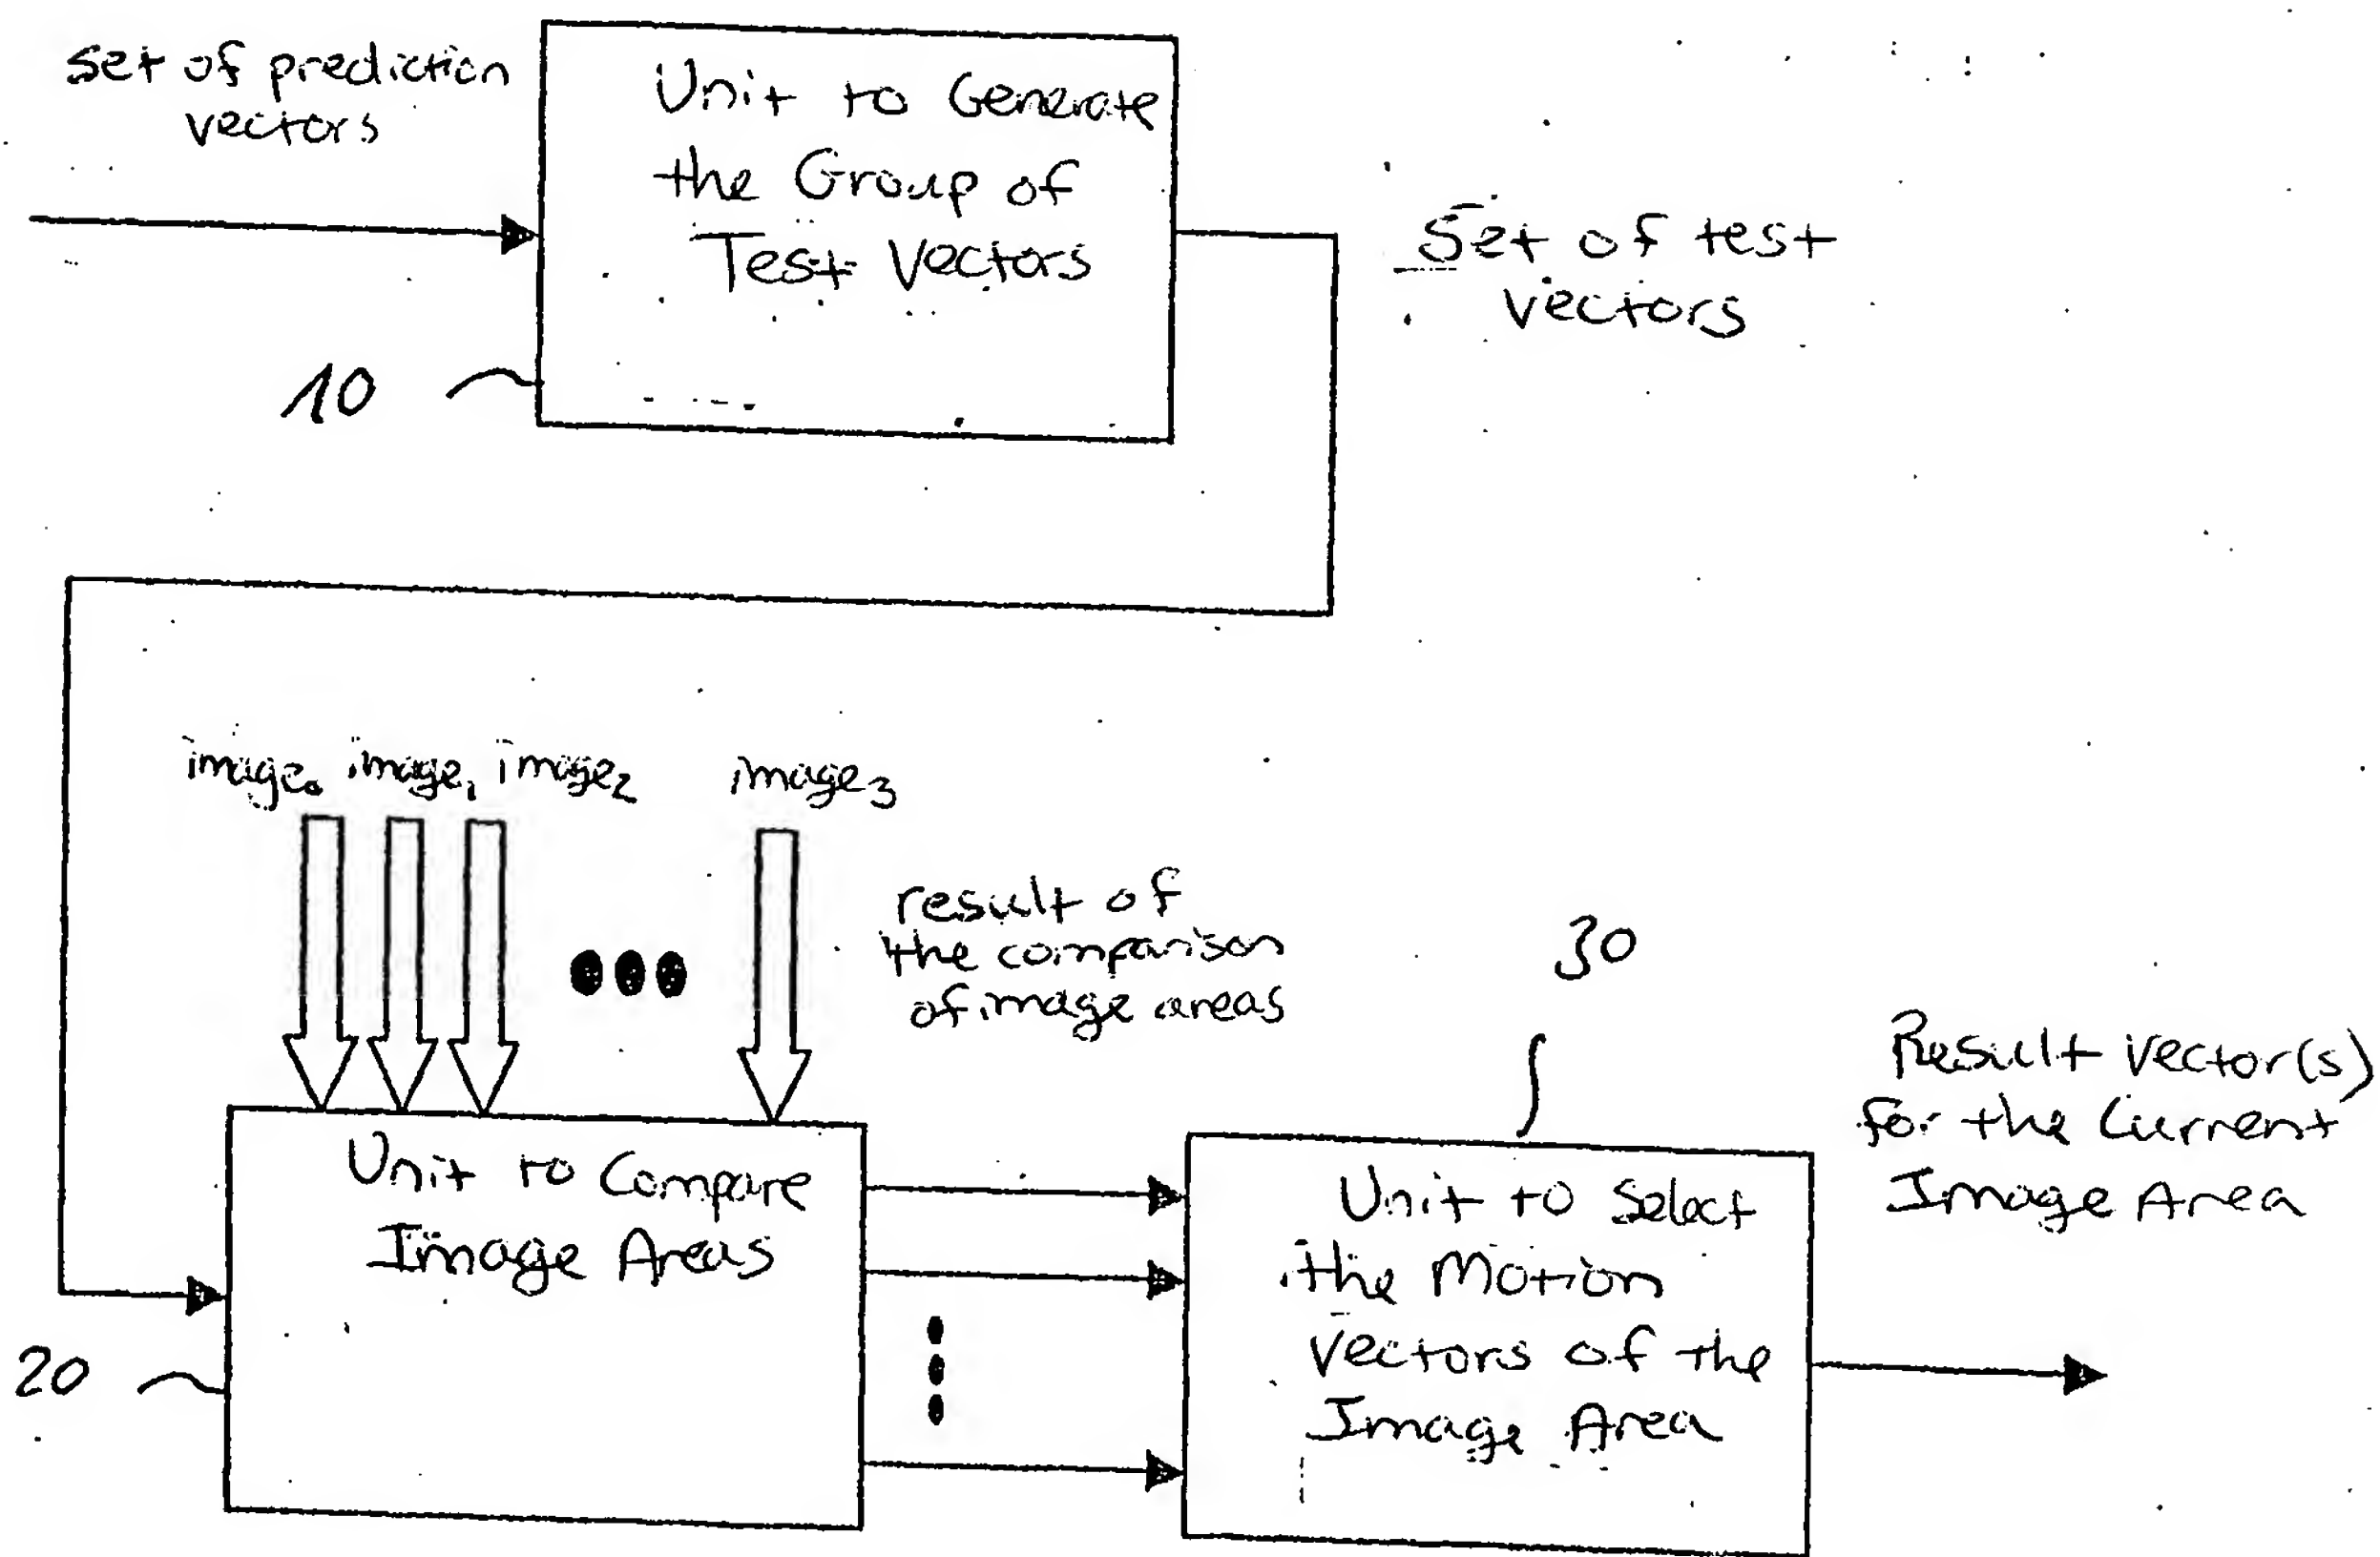 set of prediction
vectors
Unit to Generate
the Group of
Test Vectors
Set of test
vectors
10
image₀ image₁ image₂ image₃
result of
the comparison
of image areas
30
Result Vector(s)
for the Current
Image Area
Unit to Compare
Image Areas
Unit to Select
the Motion
Vectors of the
Image Area
20